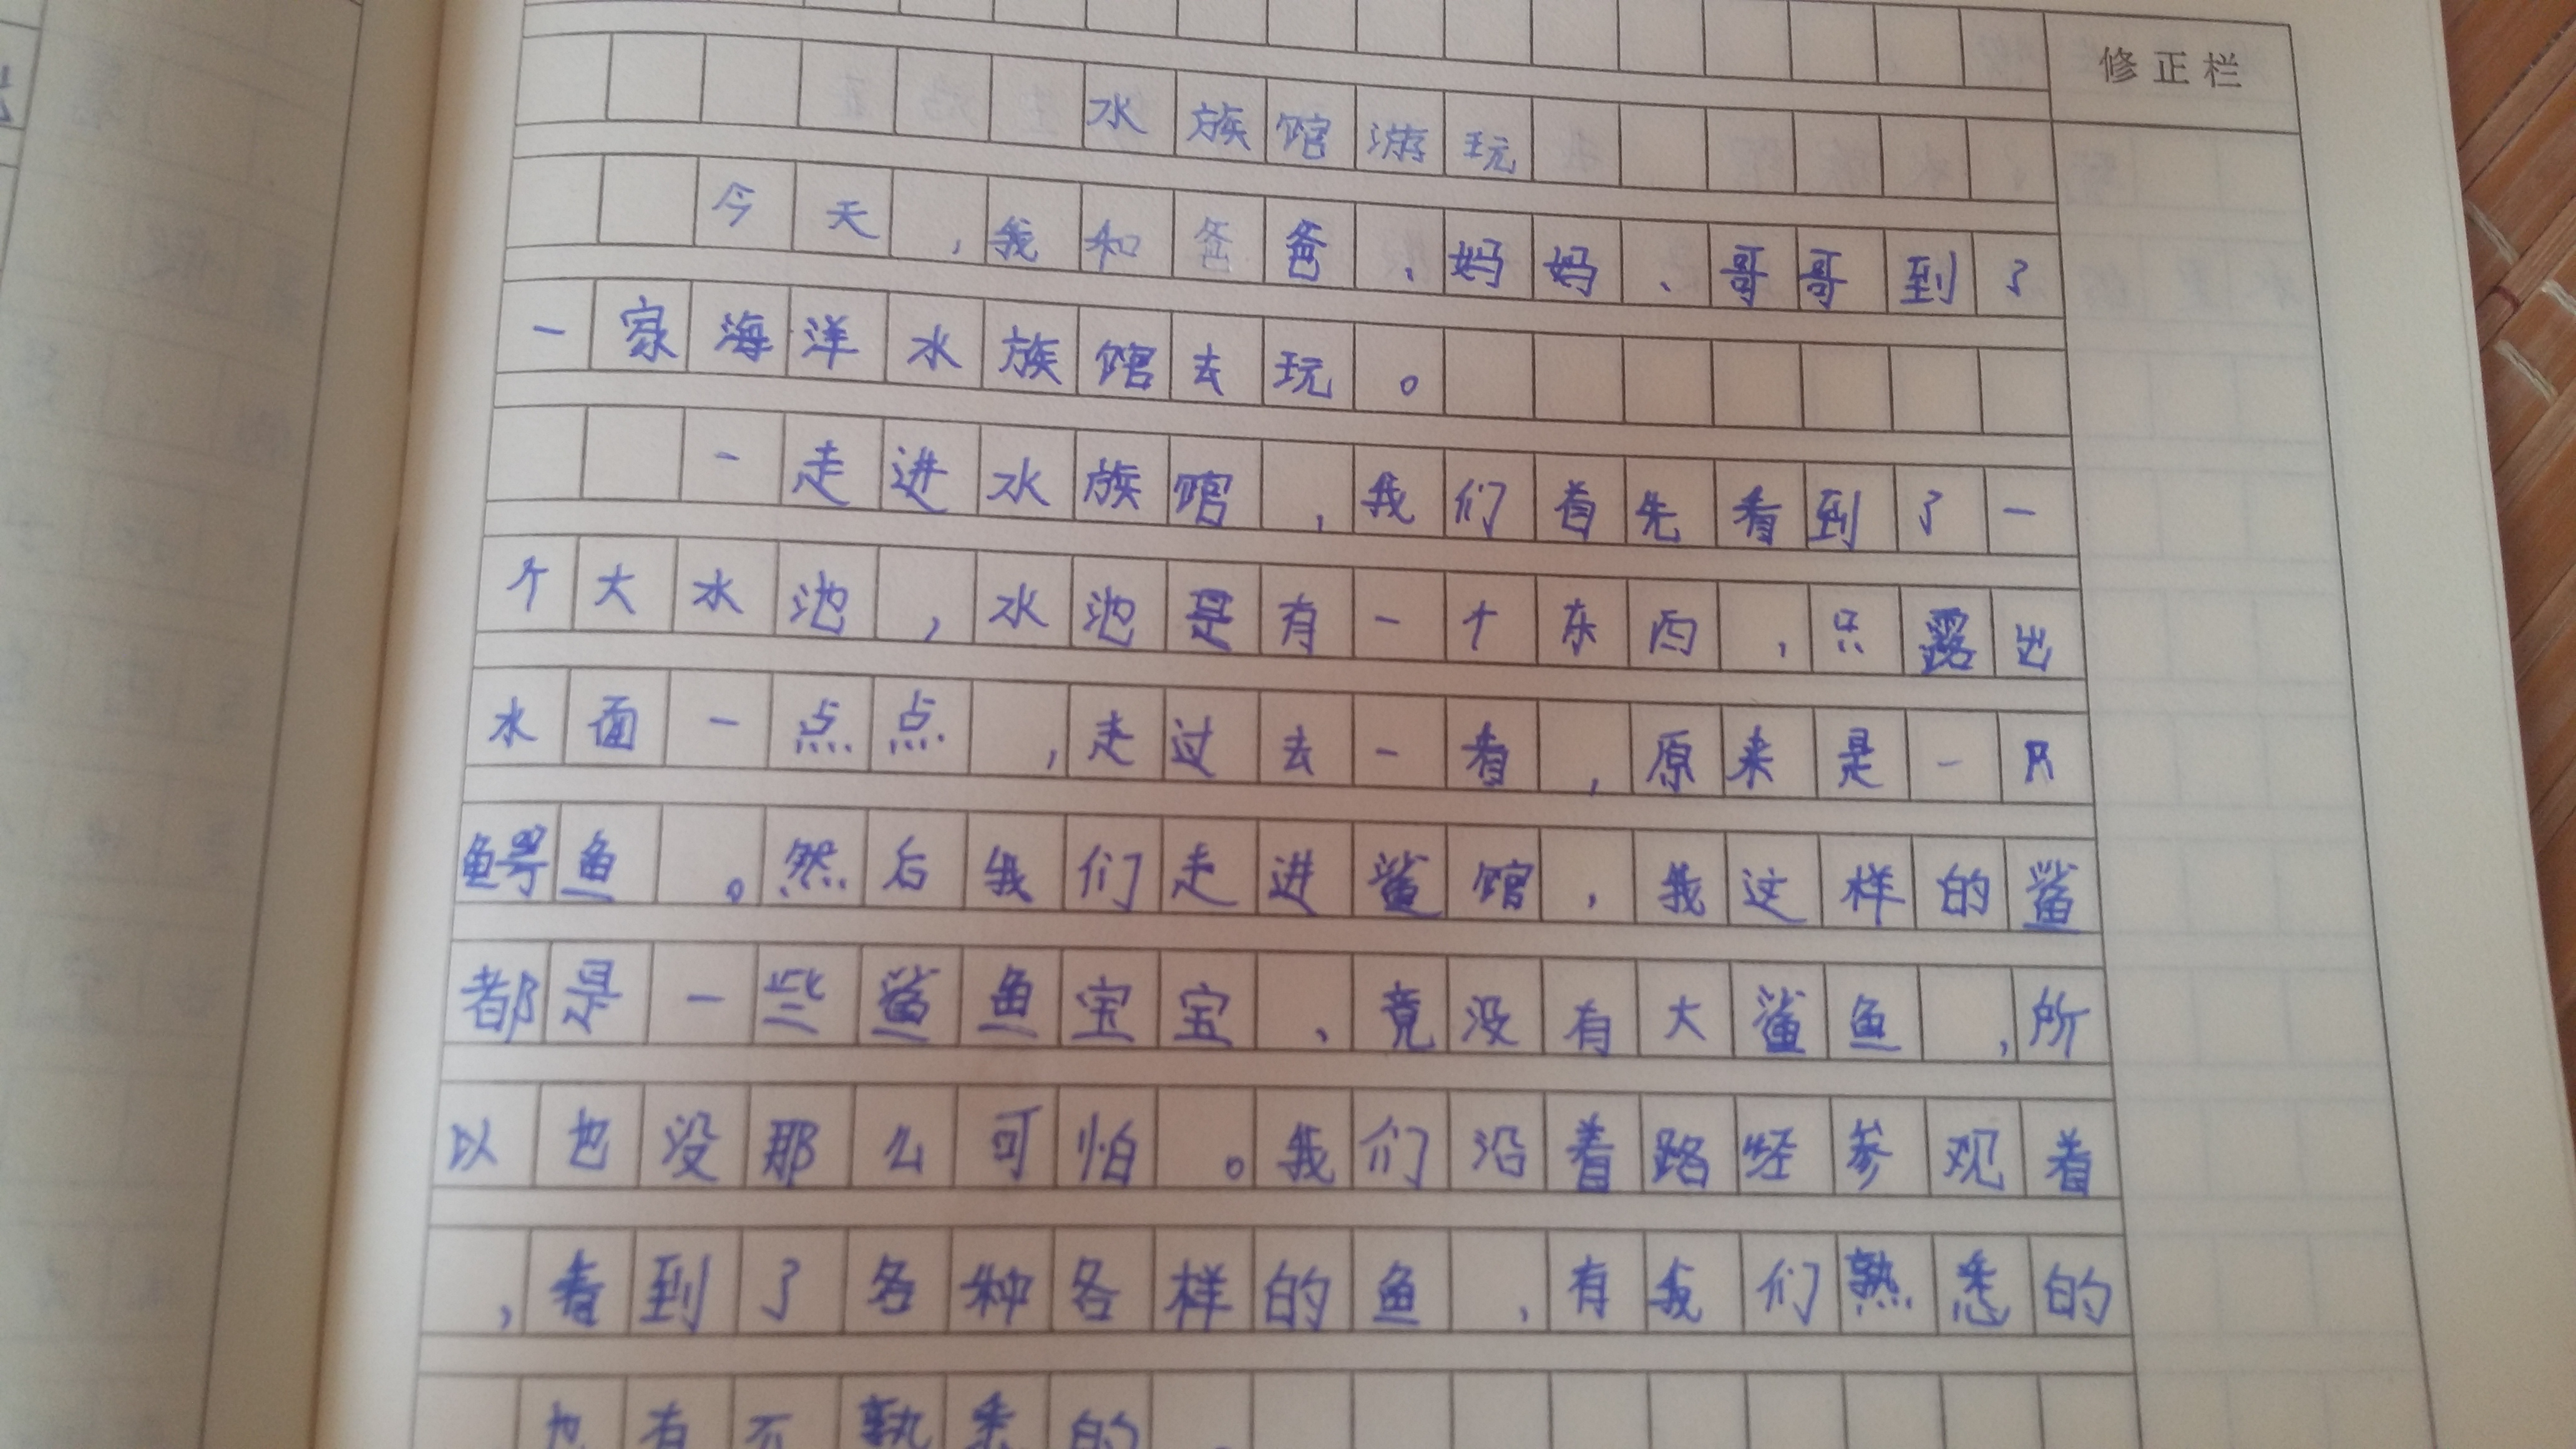 修正栏
水族馆游玩
今天，我和爸爸、妈妈、哥哥到了
一家海洋水族馆去玩。
一走进水族馆，我们首先看到了一
个大水池，水池是有一个东西，只露出
水面一点点，走过去一看，原来是一只
鳄鱼。然后我们走进鲨馆，我这样的鲨
都是一些鲨鱼宝宝，竟没有大鲨鱼，所
以也没那么可怕。我们沿着路经参观着
，看到了各种各样的鱼，有我们熟悉的
也有不熟悉的